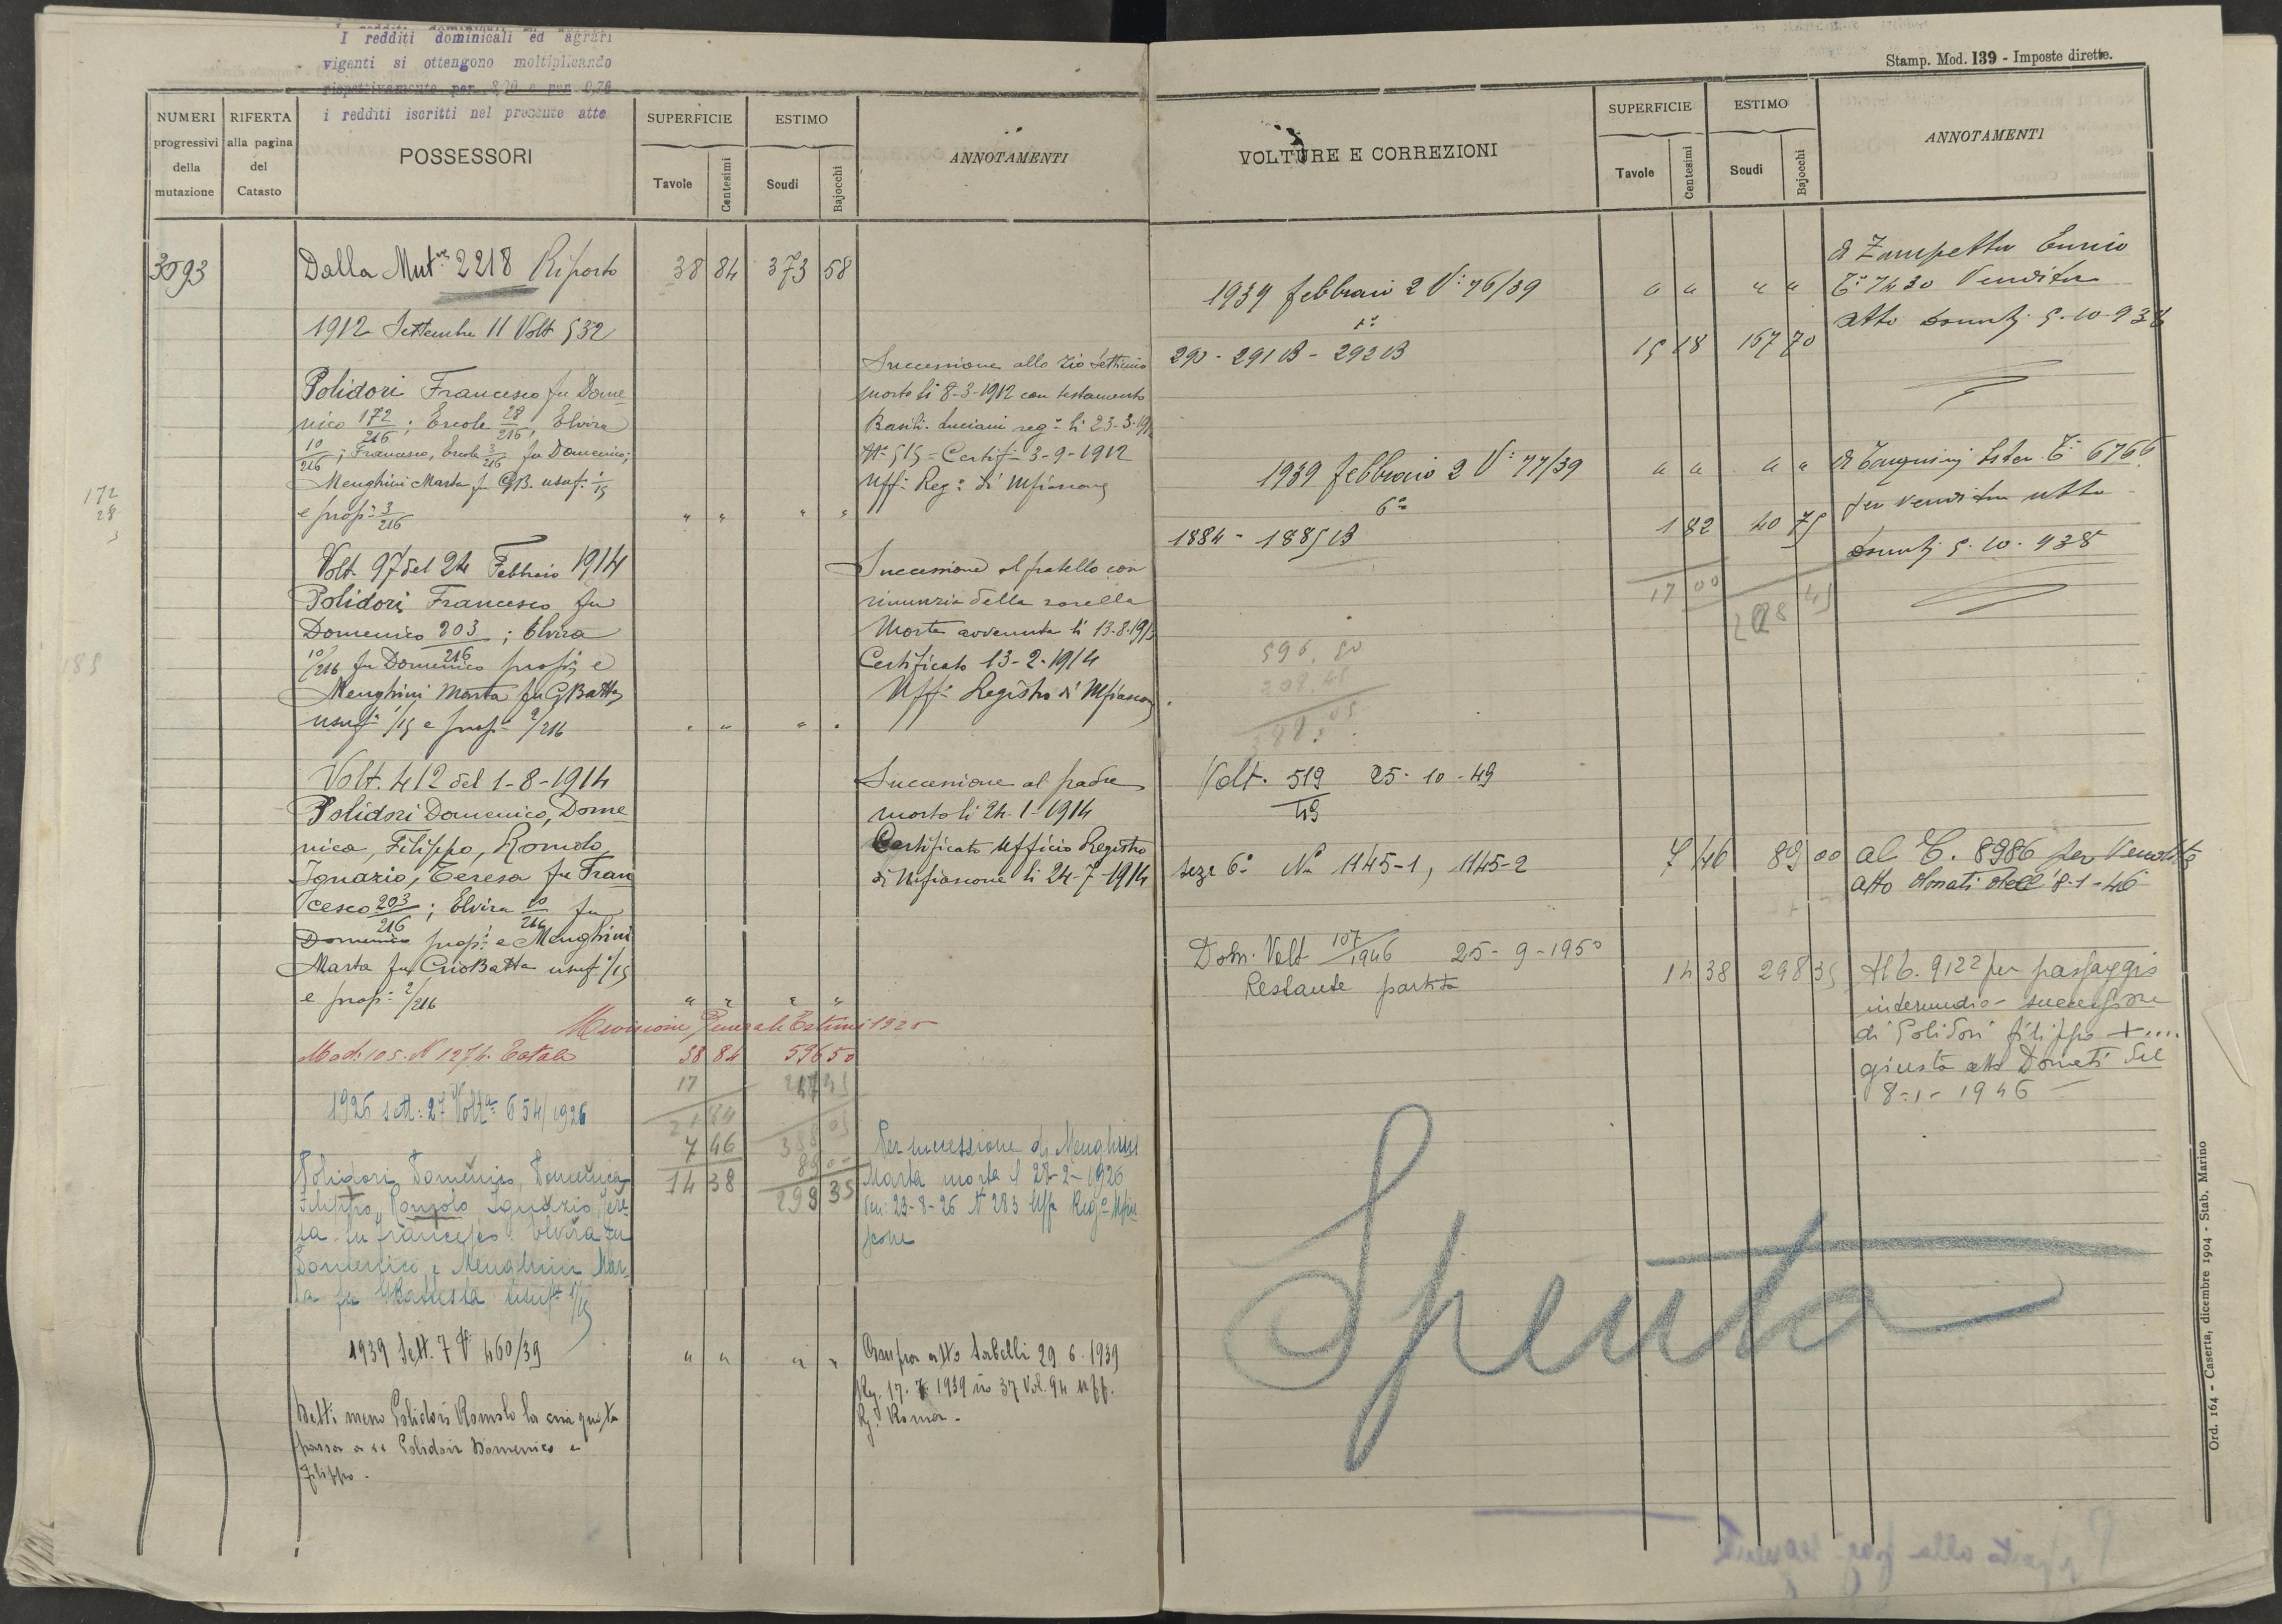 I redditi dominicali ed agrari
vigenti si ottengono moltiplicando
rispettivamente per
i redditi iscritti nel presente atto
NUMERI
progressivi
della
mutazione
RIFERTA
alla pagina
del
Catasto
POSSESSORI
SUPERFICIE
Tavole
Centesimi
ESTIMO
Scudi
Bajocchi
ANNOTAMENTI
3093
Dalla Mut.ne 2218 Riporto 38 84 373 58
1912 Settembre 11 Volt 532
Polidori Francesco fu Dome-
nico 172/216; Ercole 28/216; Elvira
10/216; Francesco, Ercole 3/216 fu Domenico;
Menghini Marta f GB. usuf. 1/15
e prop. 3/216 " " " "
Successione allo zio Settimio
morto li 8-3-1912 con testamento
Basili-Luciani reg.° li 23-3-
N° 515 = Certif. 3-9-1912
Uff. Reg.° di Mfiascone
Volt. 97 del 24 Febbraio 1914
Polidori Francesco fu
Domenico 203/216; Elvira
10/216 fu Domenico prop. e
Menghini Marta fu GBatta
usuf. 1/15 e prop. 2/216 " " " "
Successione al fratello con
rinunzia della sorella
Morte avvenuta li 13-8-1913
Certificato 13-2-1914
Uff. Registro di Mfiascone
Volt. 412 del 1-8-1914
Polidori Domenico, Dome-
nica, Filippo, Romolo,
Ignazio, Teresa fu Fran
cesco 203/216; Elvira 10/216 fu
Domenico prop. e Menghini
Marta fu GioBatta usuf. 1/15
e prop. 2/216 " " " "
Successione al padre
morto li 24-1-1914
Certificato Ufficio Registro
di Mfiascone li 24-7-1914
Revisione Generale Estimi 1925
Mod. 105. N 1274. Totale 38 84 596 50
17
21 84
7 46 89 00
14 38 298 35
1926 sett: 27 Volt.a 654/1926
Polidori Domenico, Domenica
Filippo, Romolo, Ignazio, Tere-
sa fu Francesco Elvira fu
Domenico e Menghini Mar-
ta fu GBattista usuf. 1/15
Per successione di Menghini
Marta morta il 28-2-1926
Den: 23-8-26 N 283 Uff. Reg.° Mfia
scone
1939 Sett. 7 V 460/39 " " " "
Detti meno Polidori Romolo la cui quota
passa a Polidori Domenico e
Filippo.
Compra atto Sabelli 29.6.1939
Reg. 17.7.1939 n° 37 Vol. 94 Uff.
Rg. Roma.
172
28
3
185
Stamp. Mod. 139 - Imposte dirette.
VOLTURE E CORREZIONI
SUPERFICIE
Tavole
Centesimi
ESTIMO
Scudi
Bajocchi
ANNOTAMENTI
1939 febbraio 2 V: 76/39 " " " "
1a
290 - 291 B - 292 B 15 18 167 70
a Zampetta Ennio
C° 7430 Vendita
atto Donati 5-10-938
1939 febbraio 2 V: 77/39 " " " "
6a
1884 - 1885 B 1 82 40 75
17 00 208 45
C° 6766
per vendita atto
Donati 5-10-938
596.50
208 45
388.05
Volt. 519/49 25-10-49
sez. 6a N. 1145-1, 1145-2 7 46 89 00
al C. 8986 per Vendita
atto Donati dell' 8-1-46
Dom. Volt 107/1946 25-9-1950
Restante partita 14 38 298 35
Al C. 9122 per passaggio
intermedio - successione
di Polidori Filippo +...
giusto atto Donati del
8-1-1946
Spenta
Ord. 164 - Caserta, dicembre 1904 - Stab. Marino